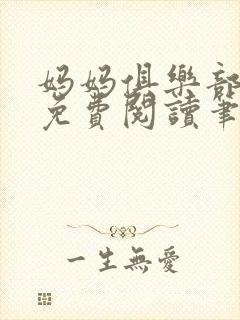 媽媽俱樂部
免費閱讀筆
一生無愛